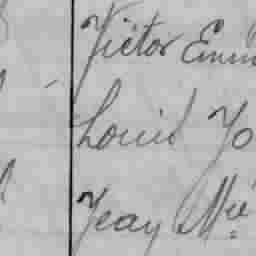 Victor Emm
Louis Jo
Jean Mie